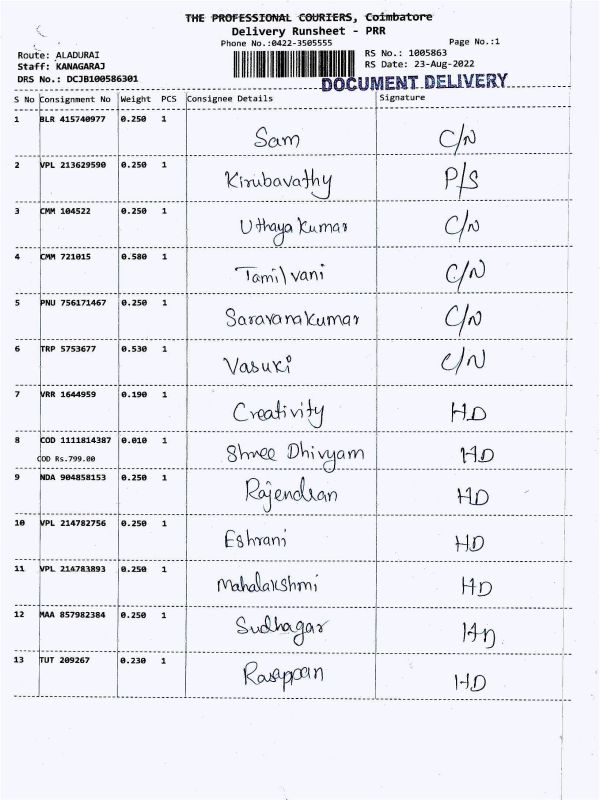 THE PROFESSIONAL COURIERS, Coimbatore
Delivery Runsheet - PRR
Phone No.:0422-3505555 Page No.:1
Route: ALADURAI RS No.: 1005863
Staff: KANAGARAJ RS Date: 23-Aug-2022
DRS No.: DCJB100586301 DOCUMENT DELIVERY
S No Consignment No Weight PCS Consignee Details Signature
1 BLR 415740977 0.250 1 Sam C/N
2 VPL 213629590 0.250 1 Kirubavathy P/S
3 CMM 104522 0.250 1 Uthaya Kumar C/N
4 CMM 721015 0.580 1 Tamilvani C/N
5 PNU 756171467 0.250 1 Saravanakumar C/N
6 TRP 5753677 0.530 1 Vasuki C/N
7 VRR 1644959 0.190 1 Creativity HD
8 COD 1111814387 0.010 1 Shree Dhivyam HD
COD Rs.799.00
9 NDA 904858153 0.250 1 Rajendran HD
10 VPL 214782756 0.250 1 Eshrani HD
11 VPL 214783893 0.250 1 Mahalakshmi HD
12 MAA 857982384 0.250 1 Sudhagar HD
13 TUT 209267 0.230 1 Rasappan HD